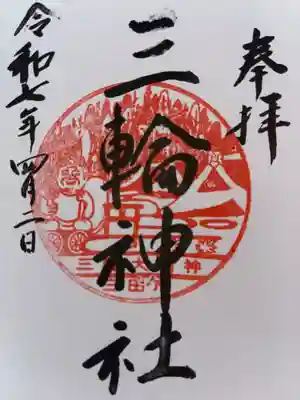 奉拝
三輪神社
令和七年四月二日